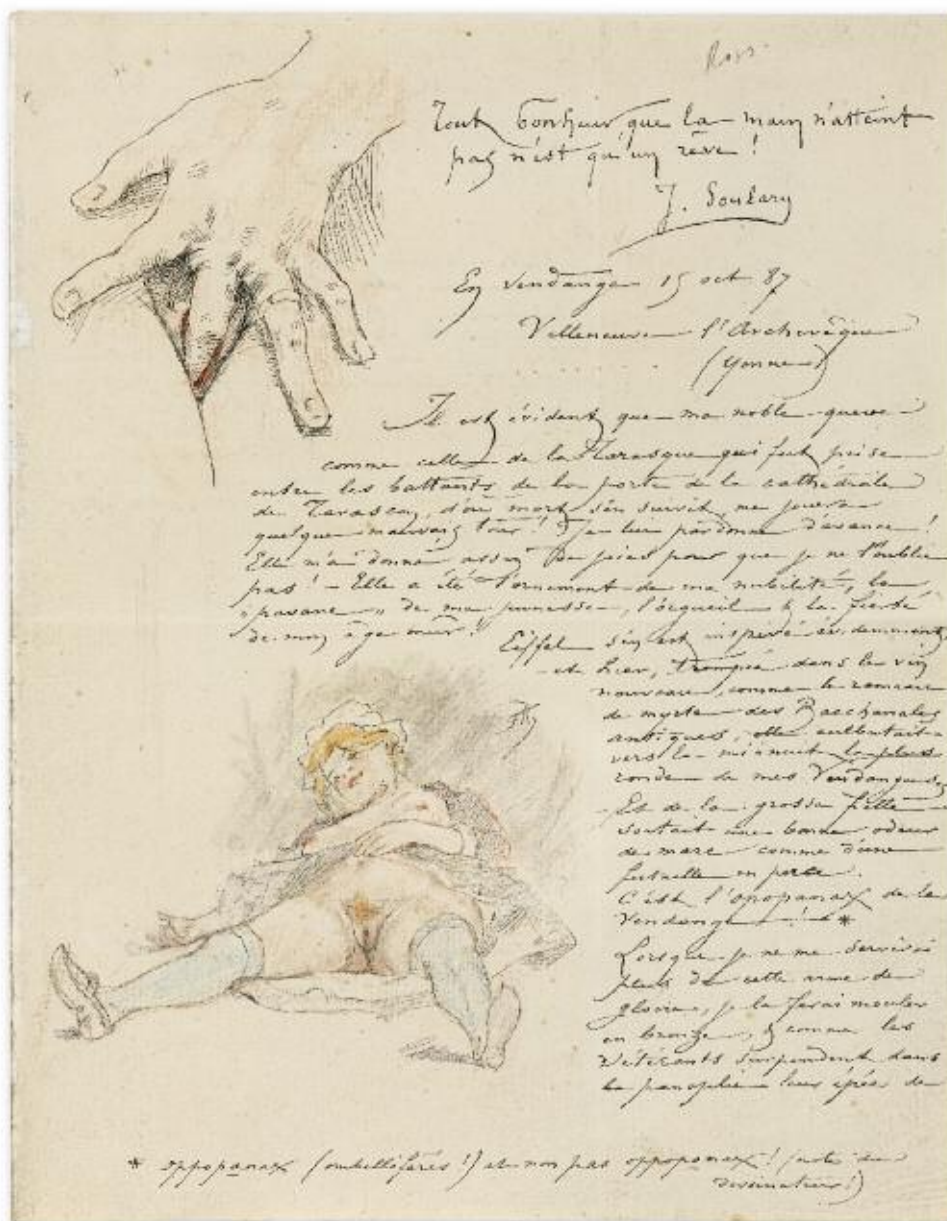 Rops
Tout bonheur que la main n'atteint
pas n'est qu'un rêve !
J. Soulary
En Vendange 15 oct 87
Villeneuve l'Archevêque
(Yonne)
Il est évident que ma noble queue
comme celle de la Tarasque qui fut prise
entre les battants de la porte de la cathédrale
de Tarascon, d'où mort s'en suivit, me jouera
quelque mauvais tour ! Je lui pardonne d'avance !
Elle m'a donné assez de joies pour que je ne l'oublie
pas ! – Elle a été l'ornement de ma nubilité, la
"pavane" de ma jeunesse, l'orgueil & la fierté
de mon âge mûr !
Eiffel s'en est inspiré évidemment,
et hier, trempée dans le vin
nouveau, comme le rameau
de myrte des Bacchanales
antiques, elle culbutait
vers la minuit la plus
ronde de mes Vendangeuses
Et de la grosse fille
sortait une bonne odeur
de marc comme d'une
futaille en perce.
C'est l'opopanax de la
Vendange ! *
Lorsque je ne me servirai
plus de cette arme de
gloire, je la ferai mouler
en bronze, & comme les
Vétérants suspendent dans
la panoplie leur épée de
* oppopanax (ombellifères !) et non pas oppoponax ! (note du
dessinateur !)